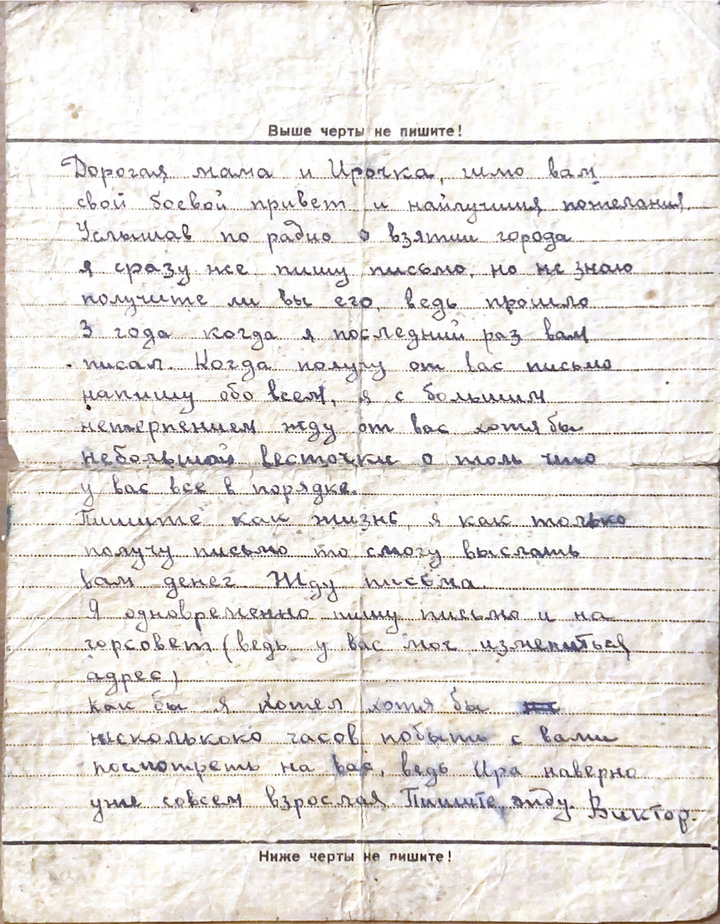 Выше черты не пишите!
Дорогая мама и Ирочка, шлю вам
свой боевой привет и найлучшия пожелания
Услышав по радио о взятии города
я сразу же пишу письмо, но не знаю
получите ли вы его, ведь прошло
3 года когда я последний раз вам
писал. Когда получу от вас письмо
напишу обо всем, я с большим
нетерпением жду от вас хотя бы
небольшой весточки о том что
у вас все в порядке.
Пишите как жизнь, я как только
получу письмо то смогу выслать
вам денег Жду письма.
Я одновременно пишу письмо и на
горсовет (ведь у вас мог измениться
адрес)
Как бы я хотел хотя бы
нисколькоко часов побыть с вами
посмотреть на вас, ведь Ира наверно
уже совсем взрослая Пишите, жду. Виктор.
Ниже черты не пишите!